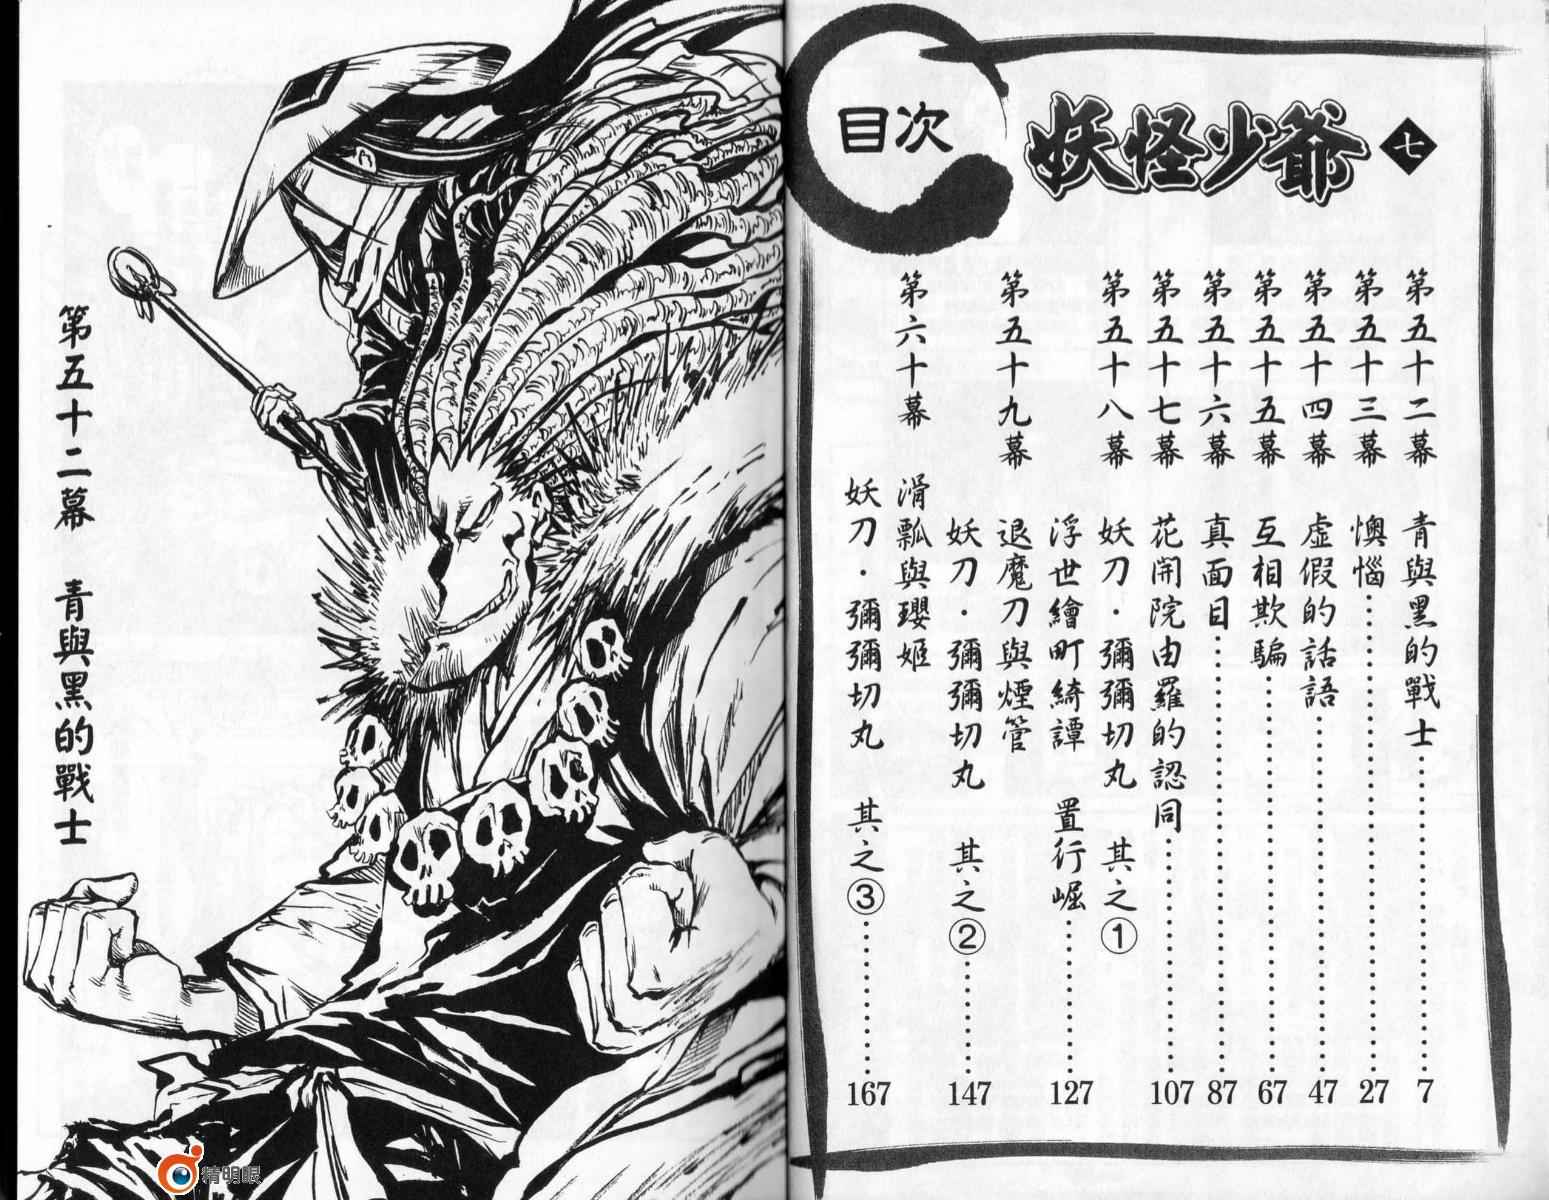 目次
妖怪少爺
七
第五十二幕 青與黑的戰士⋯⋯7
第五十三幕 懊惱⋯⋯27
第五十四幕 虛假的話語⋯⋯47
第五十五幕 互相欺騙⋯⋯67
第五十六幕 真面目⋯⋯87
第五十七幕 花開院由羅的認同⋯⋯107
第五十八幕 妖刀・彌彌切丸 其之①
浮世繪町綺譚 置行崛⋯⋯127
第五十九幕 退魔刀與煙管
妖刀・彌彌切丸 其之②⋯⋯147
第六十幕 滑瓢與瓔姬
妖刀・彌彌切丸 其之③⋯⋯167
第五十二幕 青與黑的戰士
精明眼